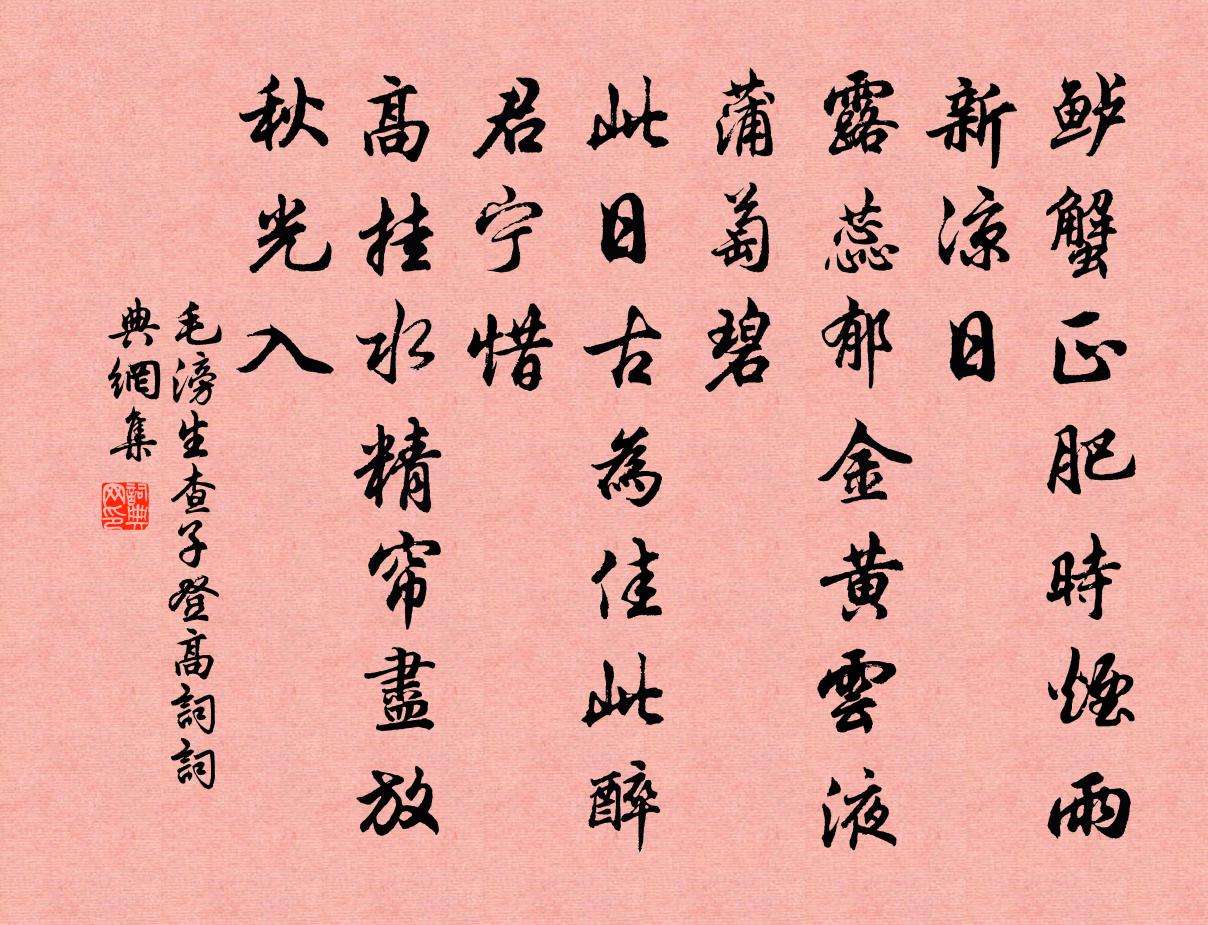 鲈蟹正肥時煙雨
新凉日
露蕊郁金黄雲液
蒲萄碧
此日古為佳此醉
君宁惜
高挂水精帘盡放
秋光入
毛滂生查子登高詞詞
典網集
詞典网印